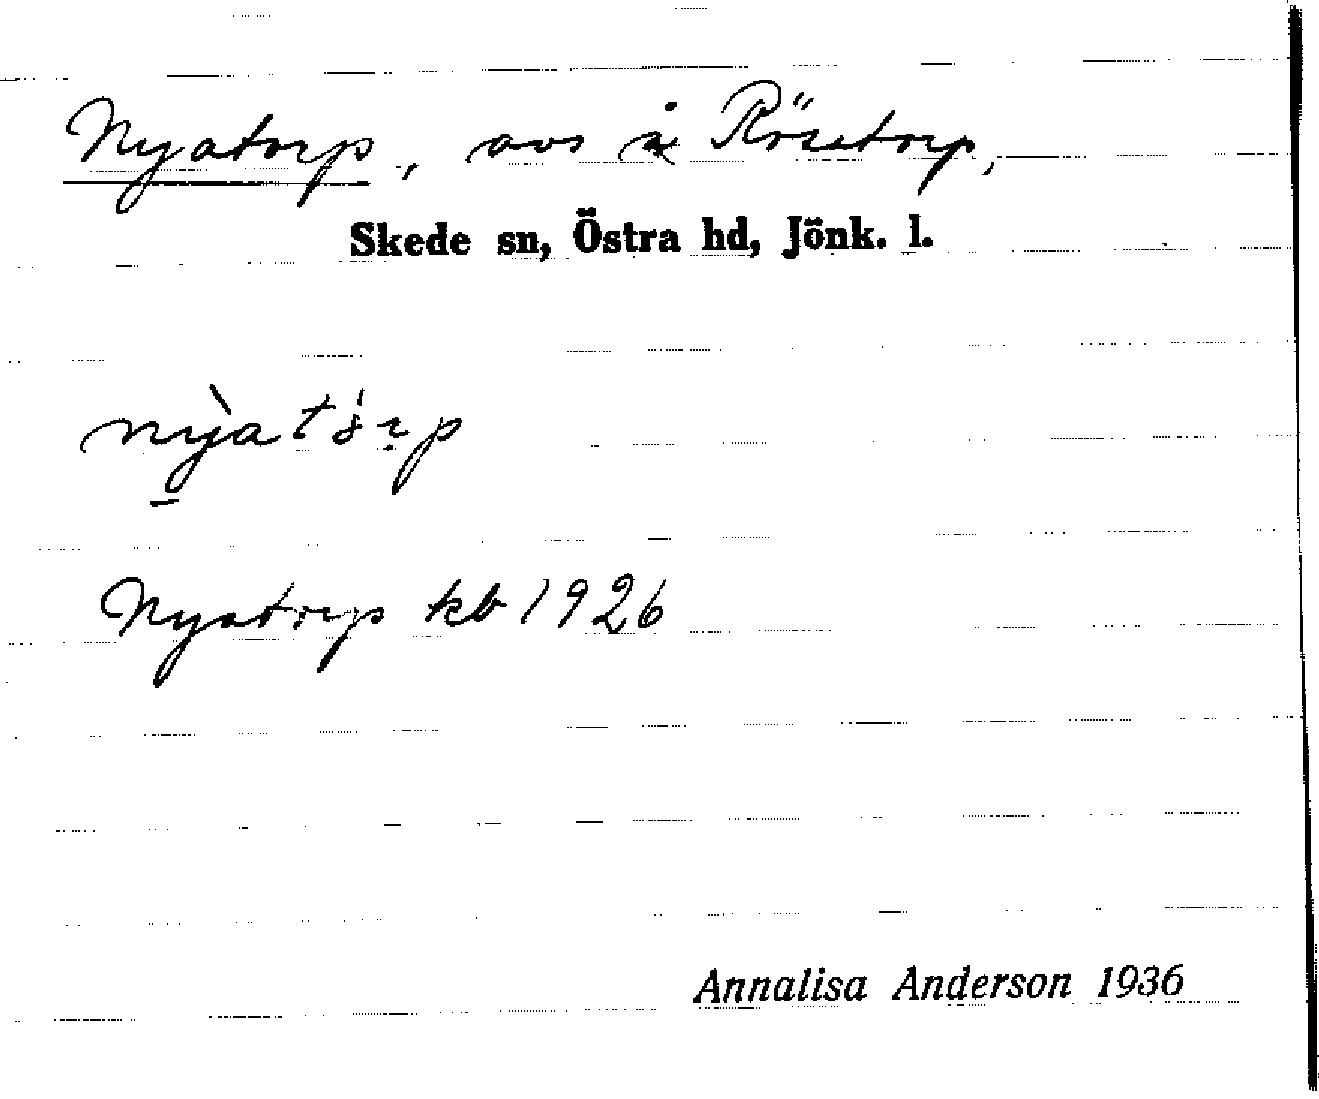 Nyatorp, avs å Rösetorp,
Skede sn, Östra hd, Jönk. l.
Nyatorp kb 1926
Annalisa Anderson 1936